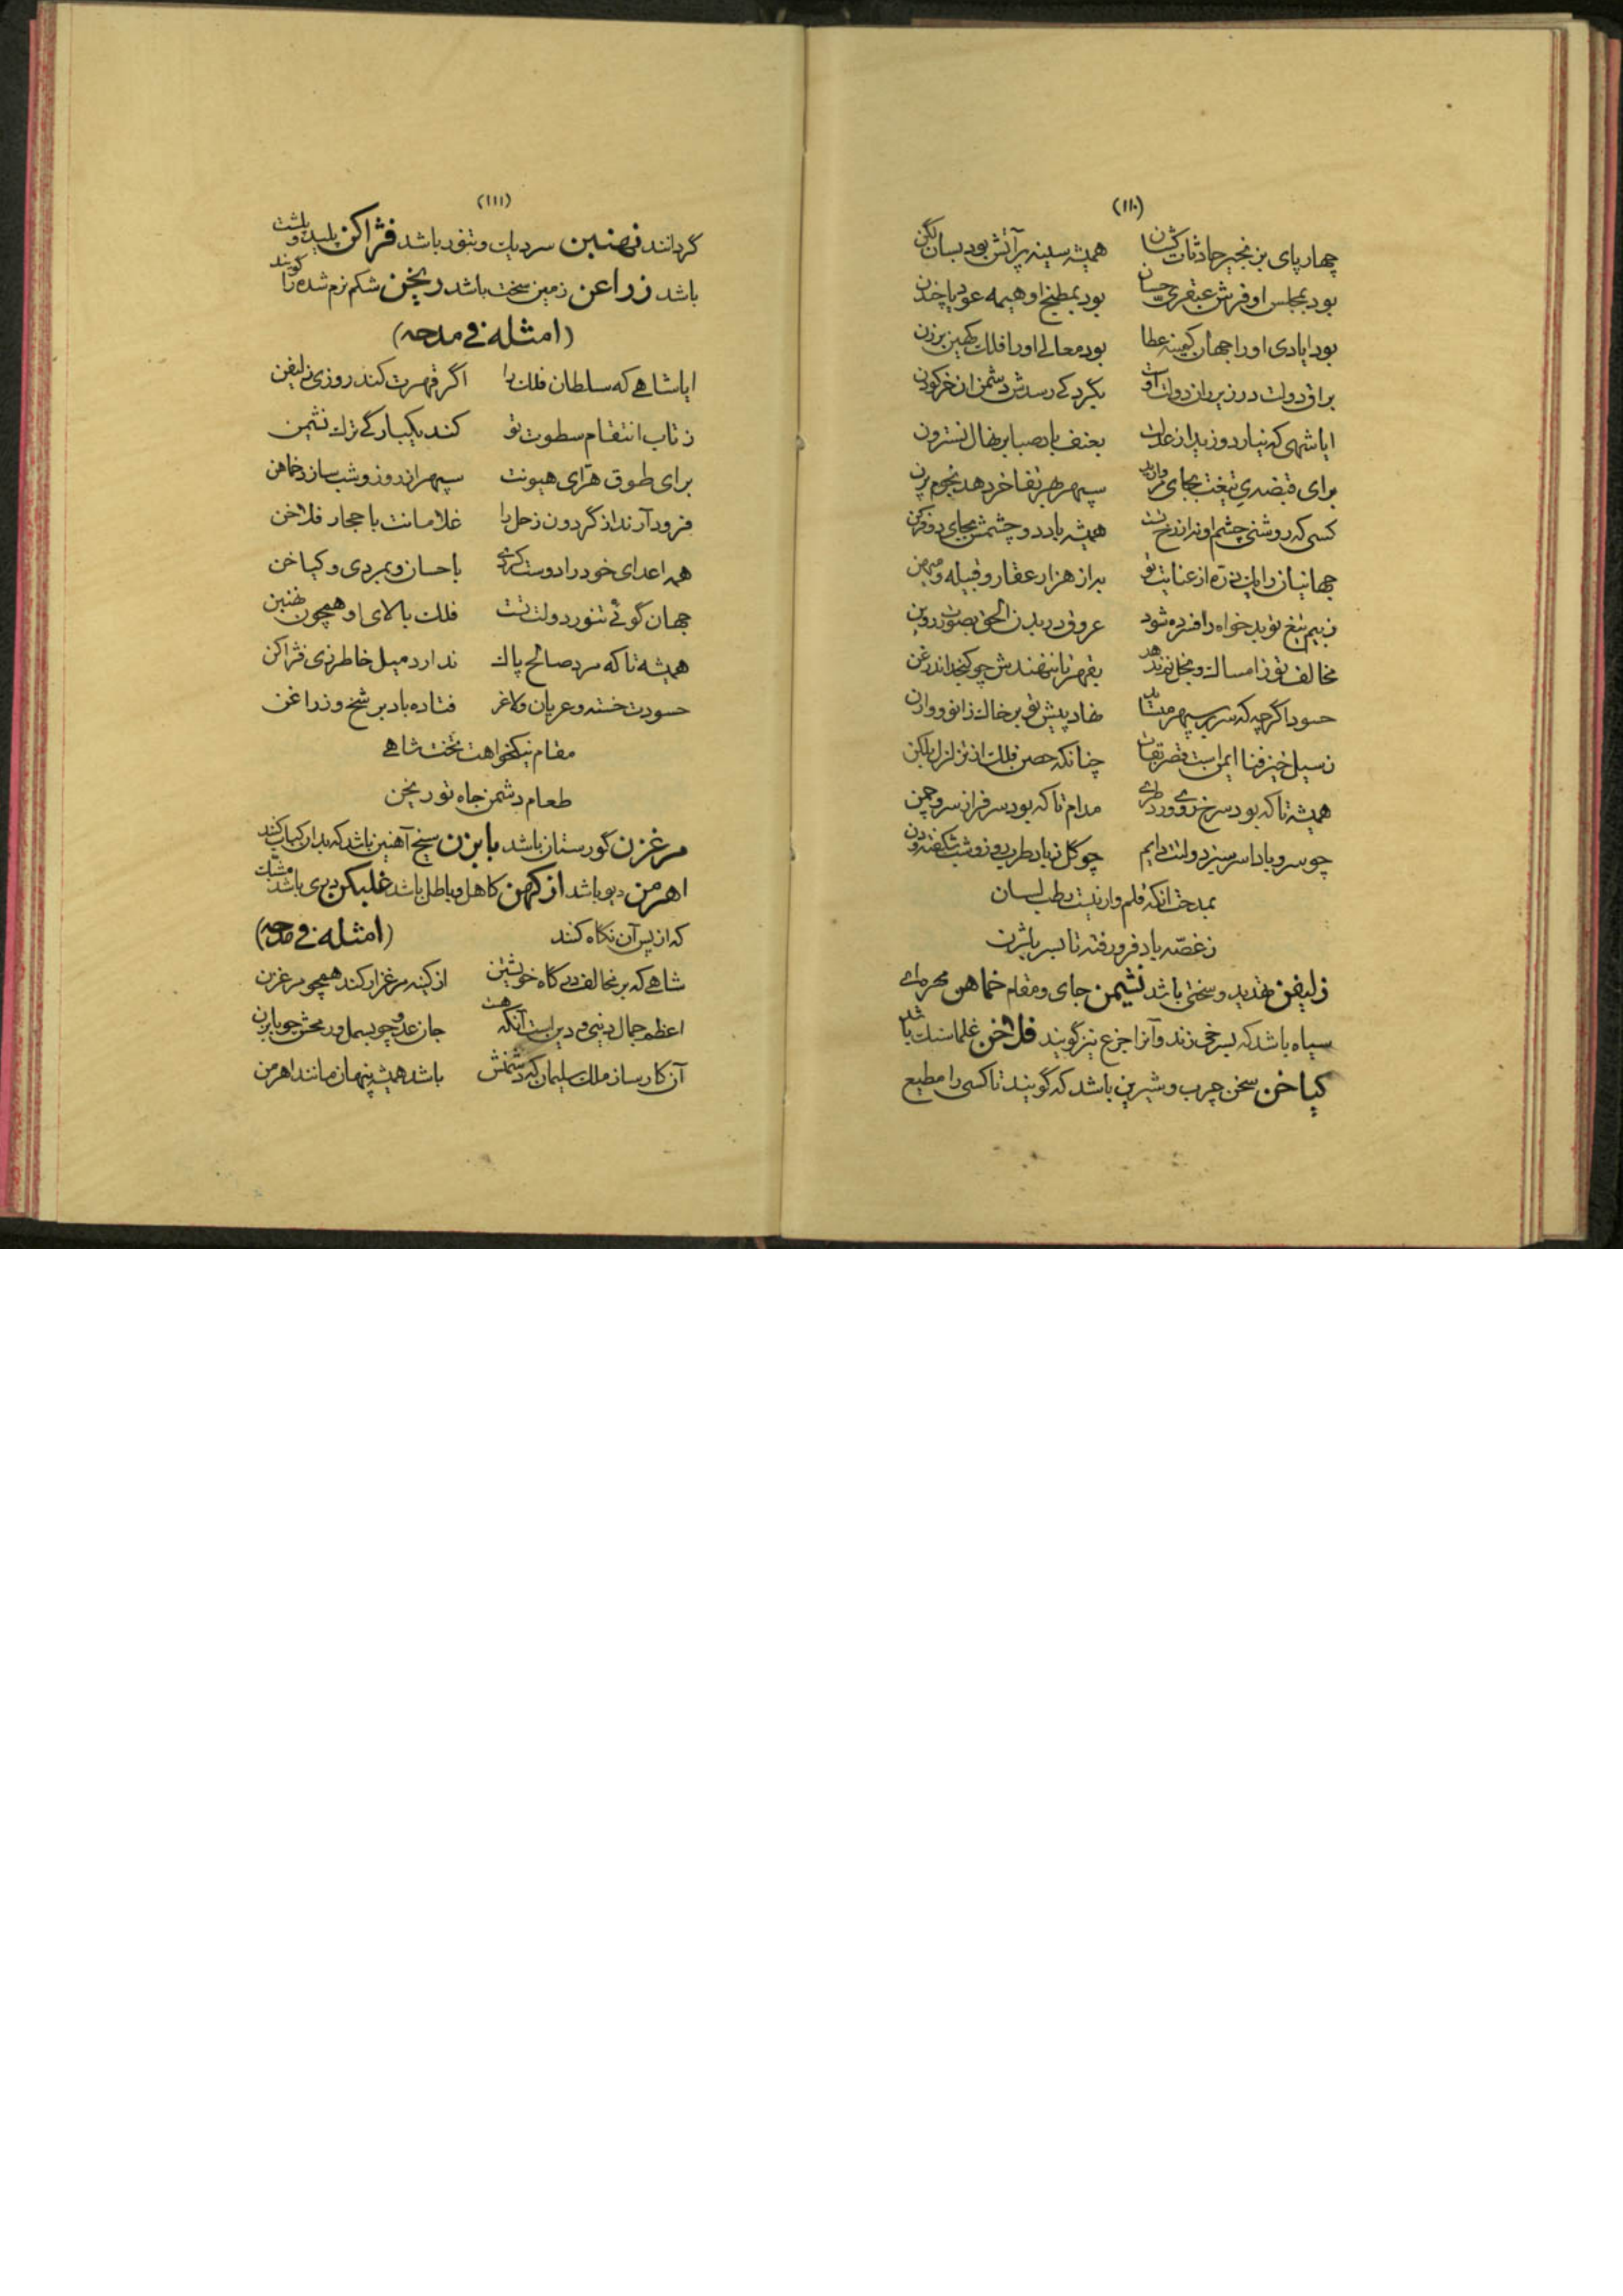 (۱۱۰)
چهار پای بزنجیر حادثات کشان همیشه سینه پر آتش بود بسان لکن
بود بمجلس او فرش عبقری حسان بود بمطبخ او هیمه عود یا چندن
بود ایادی او را جهان کمینه عطا بود معالی او را فلک کهین برزن
براق دولت در زیر ران دولت اوست بگرد کی رسدش دشمن از خر کودن
ایا شهی که نیارد روز بیداد عدلت بعنف باد صبا بر نهال نسترون
برای قبضه‌ی تیغت بجای مروارید سپهر بهر تفاخر دهد نجوم پرن
کسی که روشنی چشم او نه از رخ تست همیشه باد دو چشمش بجای دو فرکن
جهانیان را یک ذره از عنایت تو به از هزار عقار و قبیله و میهن
ز بیم تیغ تو بدخواه را فسرده شود عروق در بدن الحق بصورت روین
مخالف تو ز امساک و بخل نم ندهد بقهر تا ننهندش چو کنجد اندر غن
حسود اگرچه که سر بر سپهر میساید نهاد پیش تو بر خاک زانو و وارن
ز سیل خیز فنا ایمن است قصر بقات چنانکه حصن فلک از تزلزل بلکن
همیشه تا که بود سرخ روی ورد طری مدام تا که بود سرفراز سرو چمن
چو سرو بادا سرسبز دولتت دایم چو گل ز باد طرب روز و شب شکفته و دن
بمدحت آنکه قلم وار نیست رطب لسان
ز غصه باد فرو رفته تا بسر باژن
زلیفن تهدید و سختی باشد نشیمن جای و مقام خماهن مهره‌ای
سیاه باشد که بسرخی زند و آنرا جزع نیز گویند فلاخن غلماسنگ باشد
کیاخن سخن چرب و شیرین باشد که گویند تا کسی را مطیع
(۱۱۱)
گردانند نهنبین سر دیگ و تنور باشد فژاکن پلید و پلشت
باشد زراغن زمین سخت باشد ریخن شکم نرم شده را گویند
(امثله فی مدحه)
ایا شاهی که سلطان فلک را اگر قهرت کند روزی زلیفن
ز تاب انتقام سطوت تو کند یکبارگی ترک نشیمن
برای طوق هرّای هیونت سپهر از روز و شب سازد خماهن
فرود آرند از گردون زحل را غلامانت با حجار فلاخن
همه اعدای خود را دوست کردی باحسان و بمردی و کیاخن
جهان گوئی تنور دولت تست فلک بالای او همچون نهنبین
همیشه تا که مرد صالح پاک ندارد میل خاطر زی فژاکن
حسودت خسته و عریان و لاغر فتاده باد بر شخ و زراغن
مقام نیکخواهت تخت شاهی
طعام دشمن جاه تو ریخن
مرغزن گورستان باشد بابزن سیخ آهنین باشد که بدان کباب کنند
اهرمن دیو باشد ازکهن کاهل و باطل باشد غلبکن دری باشد مشبک
که از پس آن نگاه کنند (امثله فی مدحه)
شاهی که بر مخالف دین گاه خویشتن از کینه مرغزار کند همچو مرغزن
اعظم جمال دنیی و دین است آنکه هست جان عدو چو بسمل و رمحش چو بابزن
آن کارساز ملک سلیمان که دشمنش باشد همیشه پنهان مانند اهرمن